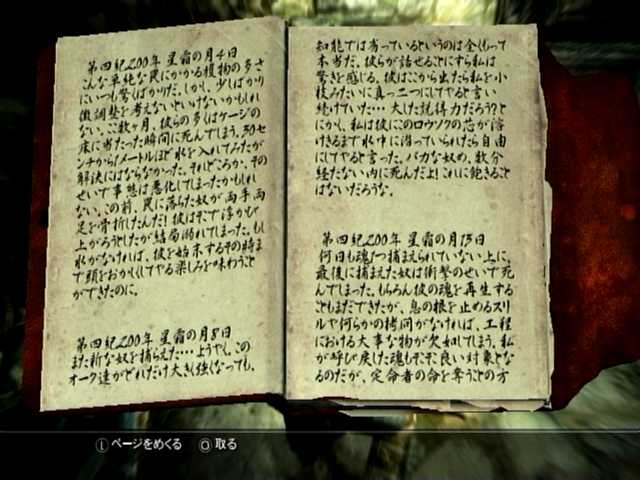 第四紀200年 星霜の月4日
こんな単純な罠にかかる植物の多さ
にいつも驚くばかりだ。しかし、少しばかり
微調整を考えないといけないかもしれ
ない。ここ数ヶ月、彼らの多くはケージの
床に当たった瞬間に死んでしまう。30セ
ンチから1メートルほど水を入れてみたが
解決にはならなかった。それどころか、その
せいで事態は悪化してしまったかもしれ
ない。この前、罠に落ちた奴が両手両
足を骨折したんだ! 彼はそこで浮かび
上がろうとしたが結局溺れてしまった。もし
水がなければ、彼を始末するその時ま
で頭をおかしくしてやる楽しみを味わうこと
ができたのに。
第四紀200年 星霜の月8日
また新な奴を捕らえた…ようやく、この
オーク達がどれだけ大きく強くなっても、
知能では劣っているというのは全くもって
本当だ。彼らが話せることにすら私は
驚きを感じる。彼はここから出たら私を小
枝みたいに真っ二つにしてやると言い
続けていた…大した説得力だろう?と
にかく、私は彼にこのロウソクの芯が溶
けきるまで水中に潜っていられたら自由
にしてやると言った。バカな奴め、数分
経たない内に死んだよ! これに飽きること
はないだろうな。
第四紀200年 星霜の月13日
何日も魂1つ捕まえられていない上に、
最後に捕まえた奴は衝撃のせいで死
んでしまった。もちろん彼の魂を再生する
こともまだできたが、息の根を止めるスリ
ルや何らかの拷問がなければ、工程
における大事な物が欠如してしまう。私
が呼び戻した魂もぞぞ良い対象とな
るのだが、定命者の命を奪うことの方
Ⓛ ページをめくる ○ 取る